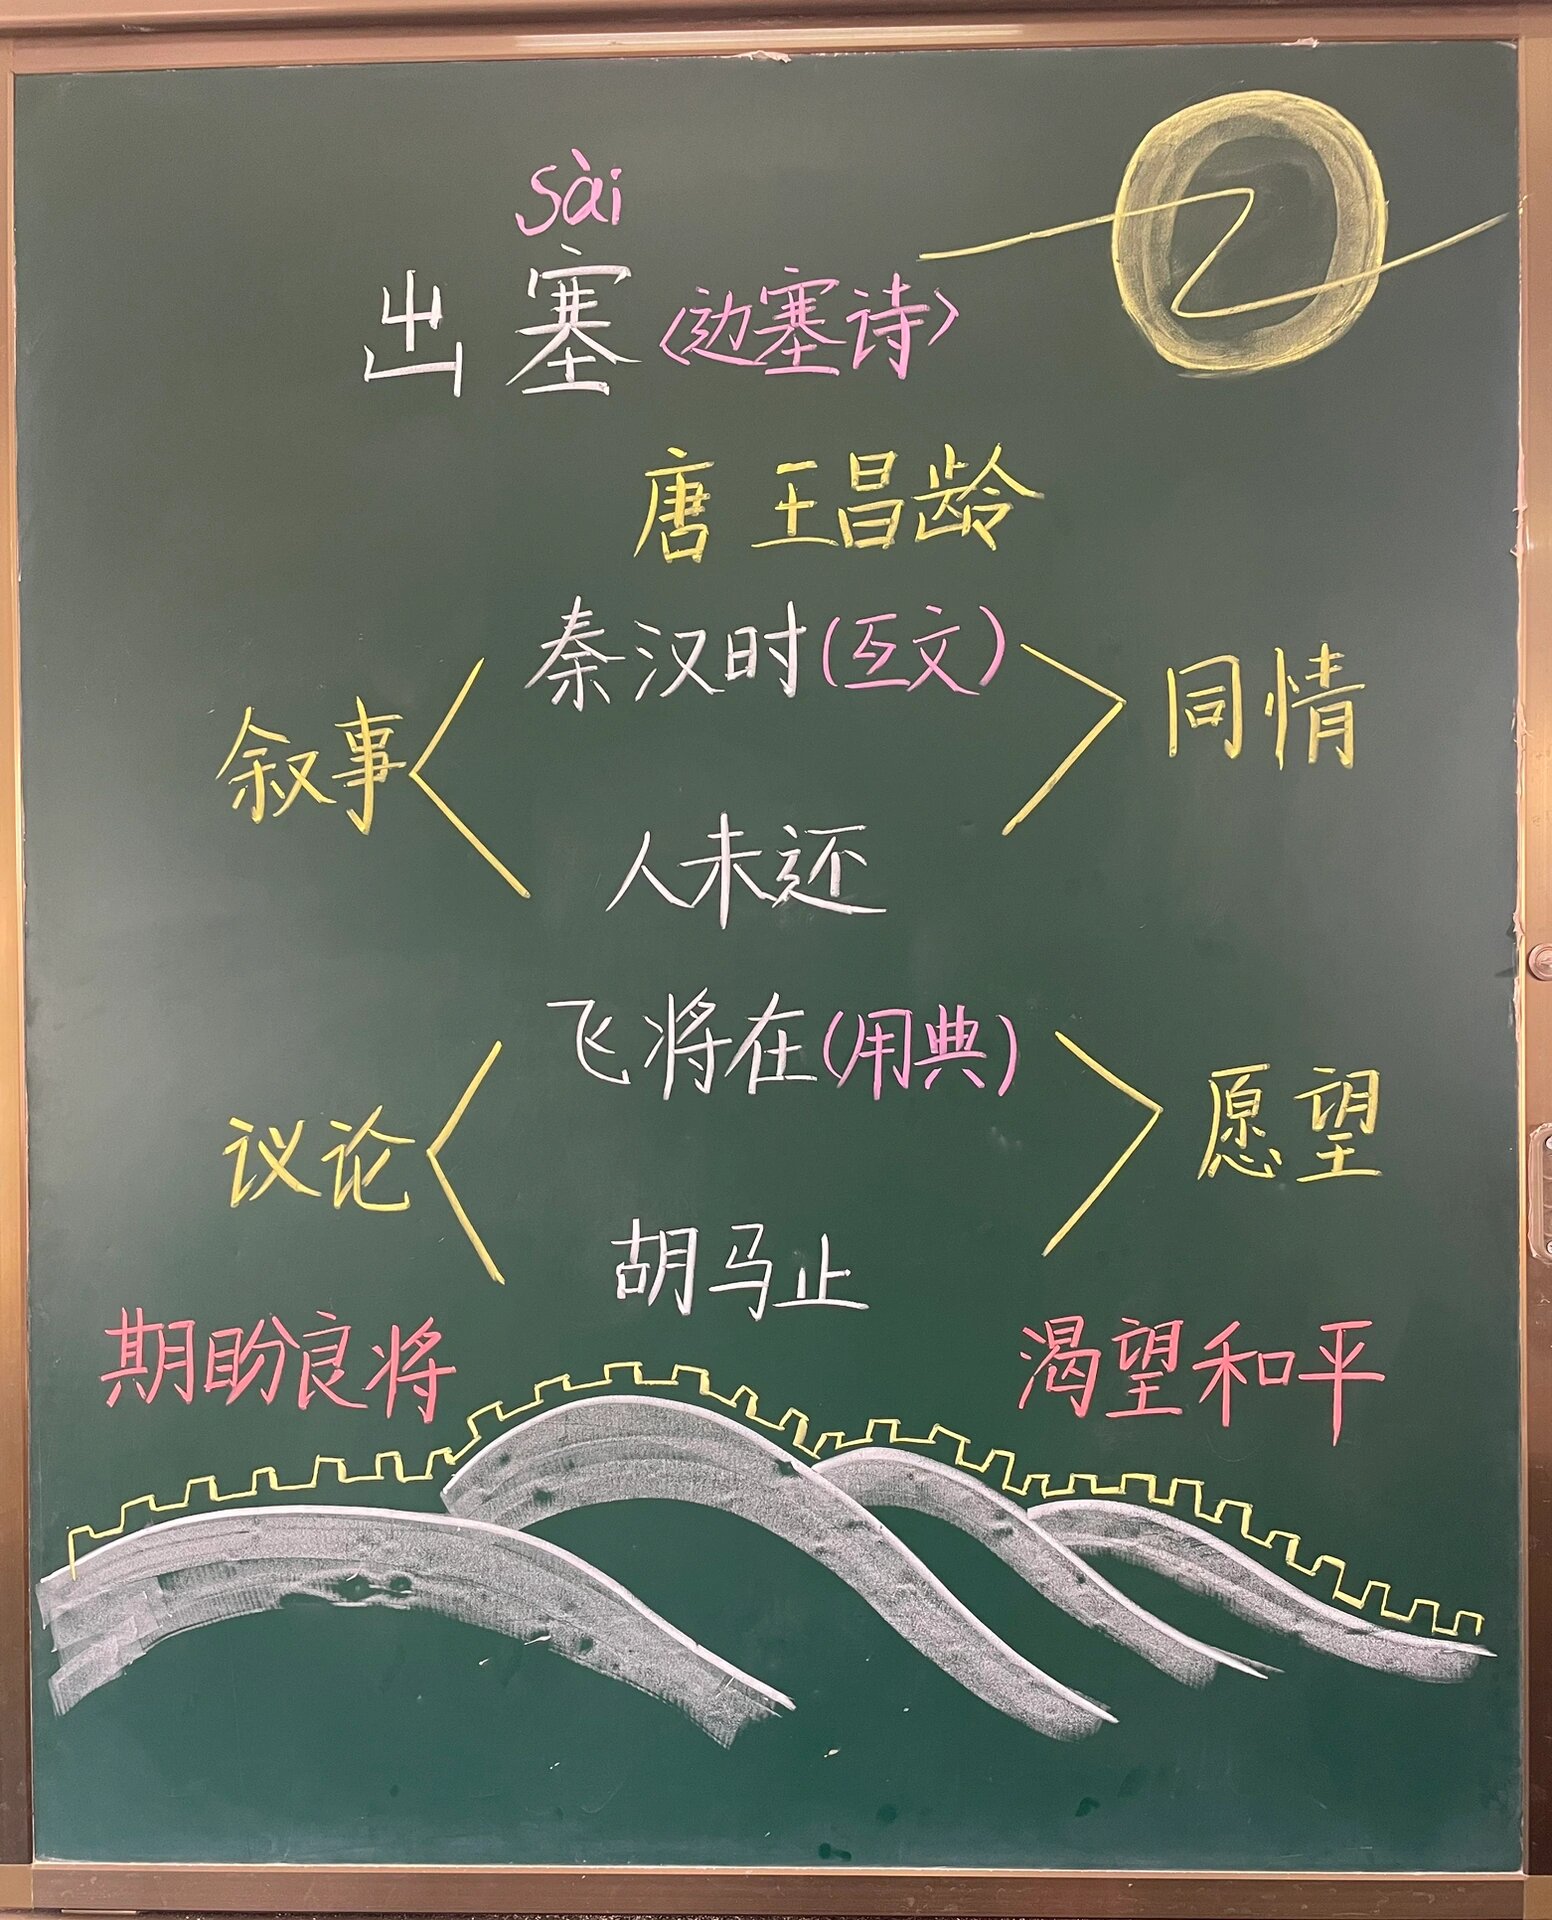 sài
出塞〈边塞诗〉
唐 王昌龄
秦汉时(互文)
叙事
同情
人未还
飞将在(用典)
议论
愿望
胡马止
期盼良将
渴望和平